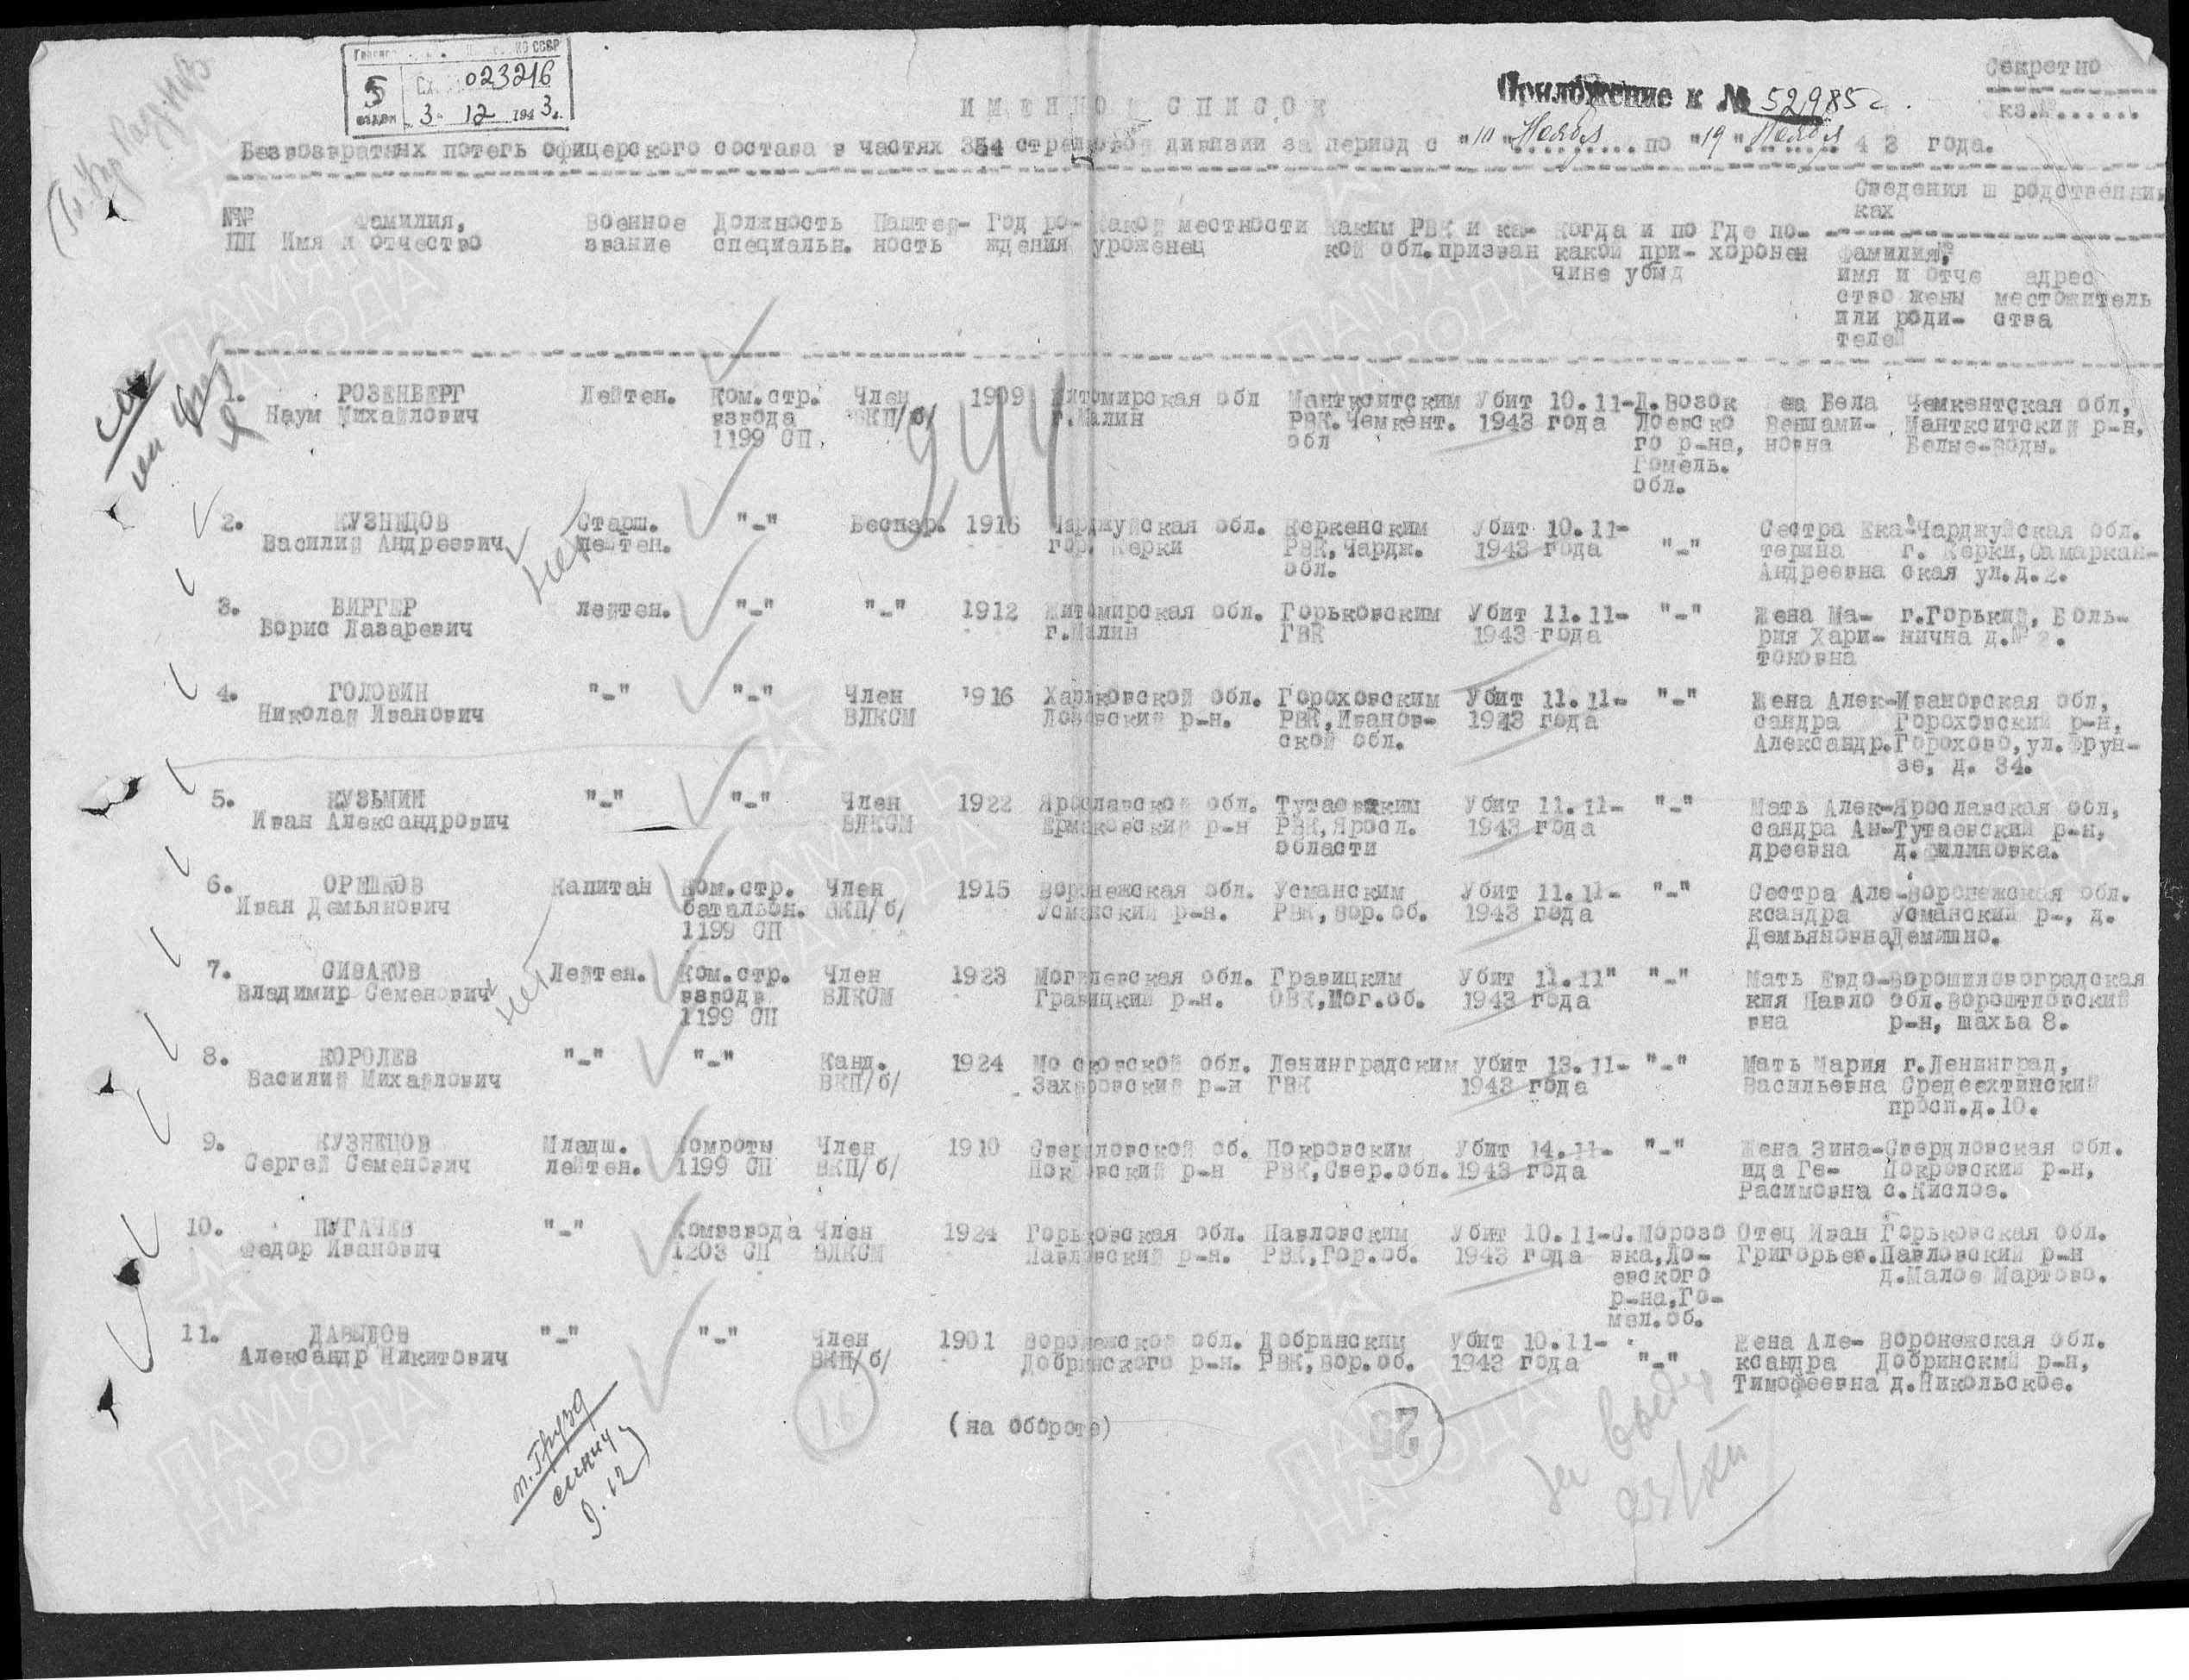 5
023216
3 12 1943 г.
Секретно
Приложение к № 52985с
ИМЕННОЙ СПИСОК
кз.№......
Безвозвратных потерь офицерского состава в частях 354 стрелковой дивизии за период с "10" Ноября по "19" Ноября 43 года.
№№ Фамилия, Военное Должность Паштей- Год ро- какой местности Каким РВК и ка- Когда и по Где по- Сведения ш родственни-
ках
ПП Имя и отчество звание специальн. ность ждения уроженец кой обл.призван какой при- хоронен Фамилия,
чине убыд имя и отче адрес
ство жены местожитель
или роди- ства
телей
1. РОЗЕНБЕРГ Лейтен. Ком.стр. Член 1909 Житомирская обл Манткситским Убит 10.11- Д.Возок Жена Бела Чемкентская обл,
Наум Михайлович взвода ВКП/б/ г.Малин РВК.Чемкент. 1943 года Лоевско Вениами- Манткситский р-н,
1199 СП. обл го р-на, новна Белые-воды.
Гомель.
обл.
944
2. КУЗНЕЦОВ Старш. "-" Беспар. 1916 Чарджуйская обл. Керкенским Убит 10.11- Сестра Ека- Чарджуйская обл.
Василий Андреевич лейтен. гор. Керки РВК,Чардж. 1943 года "-" терина г. Керки,Самаркан-
обл. Андреевна ская ул.д.2.
3. БИРГЕР лейтен. "-" "-" 1912 Житомирская обл. Горьковским Убит 11.11- "-" Жена Ма- г.Горький, Боль-
Борис Лазаревич г.Малин ГВК 1943 года рия Хари- нична д.№ 2.
тоновна
4. ГОЛОВИН "-" "-" Член 1916 Харьковской обл. Гороховским Убит 11.11- "-" Жена Алек- Ивановская обл,
Николай Иванович ВЛКСМ Лозовский р-н. РВК,Иванов- 1943 года сандра Гороховский р-н,
ской обл. Александр. Горохово,ул.Фрун-
зе, д. 34.
5. КУЗЬМИН "-" "-" Член 1922 Ярославской обл. Тутаевским Убит 11.11- "-" Мать Алек- Ярославская обл,
Иван Александрович ВЛКСМ Ермаковский р-н РВК,Яросл. 1943 года сандра Ан- Тутаевский р-н,
области дреевна д.Филиновка.
6. ОРЕШКОВ Капитан Ком.стр. Член 1915 Воронежская обл. Усманским Убит 11.11- "-" Сестра Але- Воронежская обл.
Иван Демьянович батальон. ВКП/б/ Усманский р-н. РВК,Вор.об. 1943 года ксандра Усманский р-, д.
1199 СП Демьяновна Демшино.
7. СИВАКОВ Лейтен. Ком.стр. Член 1923 Могилевская обл. Гравицким Убит 11.11" "-" Мать Евдо- Ворошиловоградская
Владимир Семенович взвода ВЛКСМ Гравицкий р-н. ОВК,Мог.об. 1943 года кия Павло обл.Вороштловский
1199 СП вна р-н, шахьа 8.
8. КОРОЛЕВ "-" "-" Канд. 1924 Московской обл. Ленинградским Убит 13.11- "-" Мать Мария г.Ленинград,
Василий Михайлович ВКП/б/ Захаровский р-н ГВК 1943 года Васильевна Средеехтинский
просп.д.10.
9. КУЗНЕЦОВ Младш. Комроты Член 1910 Свердловской об. Покровским Убит 14.11- "-" Жена Зина- Свердловская обл.
Сергей Семенович лейтен. 1199 СП ВКП/б/ Покровский р-н РВК,Свер.обл. 1943 года ида Ге- Покровский р-н,
Расимовна с.Кислое.
10. ПУГАЧЕВ "-" Комвзвода Член 1924 Горьковская обл. Павловским Убит 10.11- С.Морозо Отец Иван Горьковская обл.
Федор Иванович 1203 СП ВЛКСМ Павловский р-н. РВК,Гор.об. 1943 года вка,Ло- Григорьев. Павловский р-н
евского д.Малое Мартово.
р-на,Го-
мел.об.
11. ДАВЫДОВ "-" "-" Член 1901 Воронежской обл. Добринским Убит 10.11- Жена Але- Воронежская обл.
Александр Никитович ВКП/б/ Добринского р-н. РВК,Вор.об. 1943 года "-" ксандра Добринский р-н,
Тимофеевна д.Никольское.
16
(на обороте)
25
9.12
ПАМЯТЬ НАРОДА